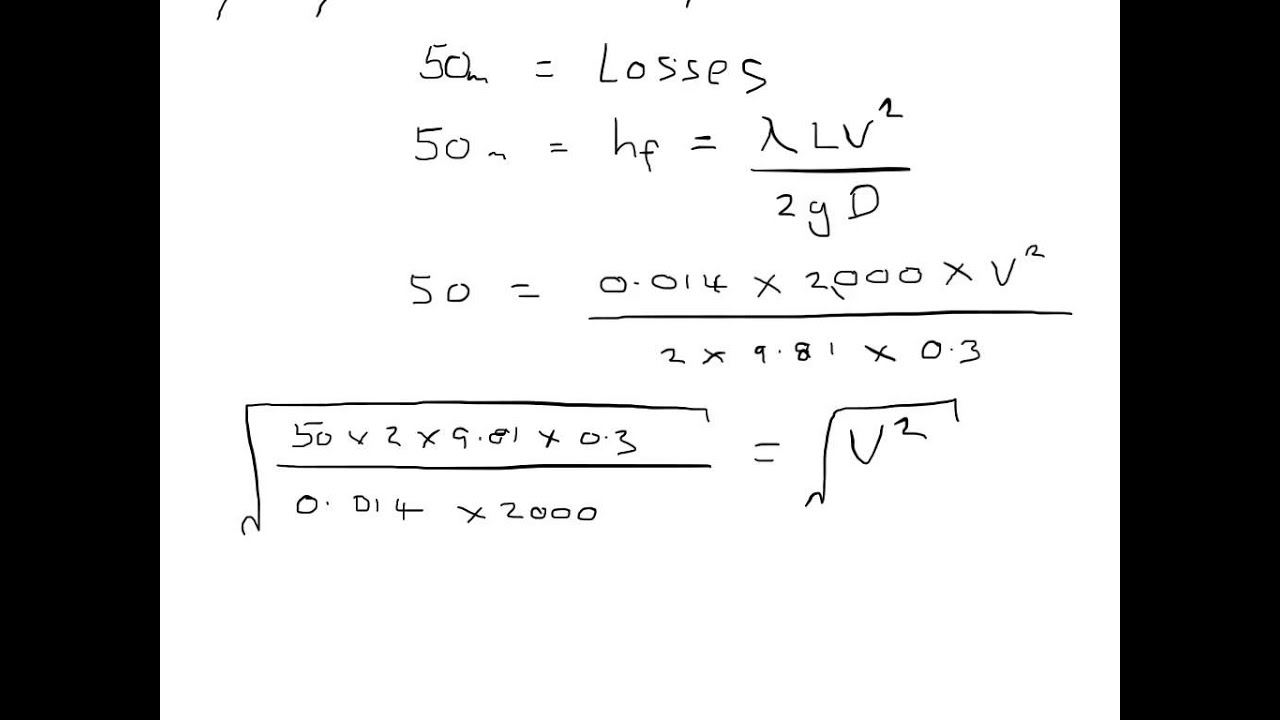 50m = Losses
50m = hf = λLV² / 2gD
50 = 0.014 × 2,000 × V² / 2 × 9.81 × 0.3
√(50 × 2 × 9.81 × 0.3 / 0.014 × 2000) = √V²